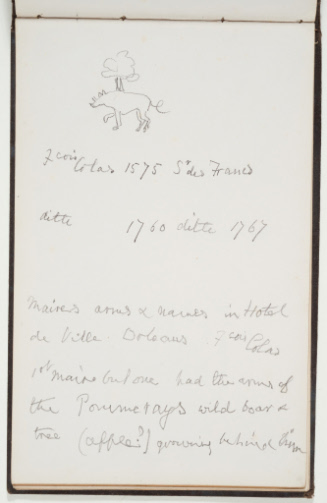 Fcois Colas 1575 Sr des Francs
ditto 1760 ditto 1767
Maires arms & names in Hotel
de Ville. Orleans. Fcois Colas
1st maire but one had the arms of
the Pommerays wild boar &
tree (apple?) growing behind him